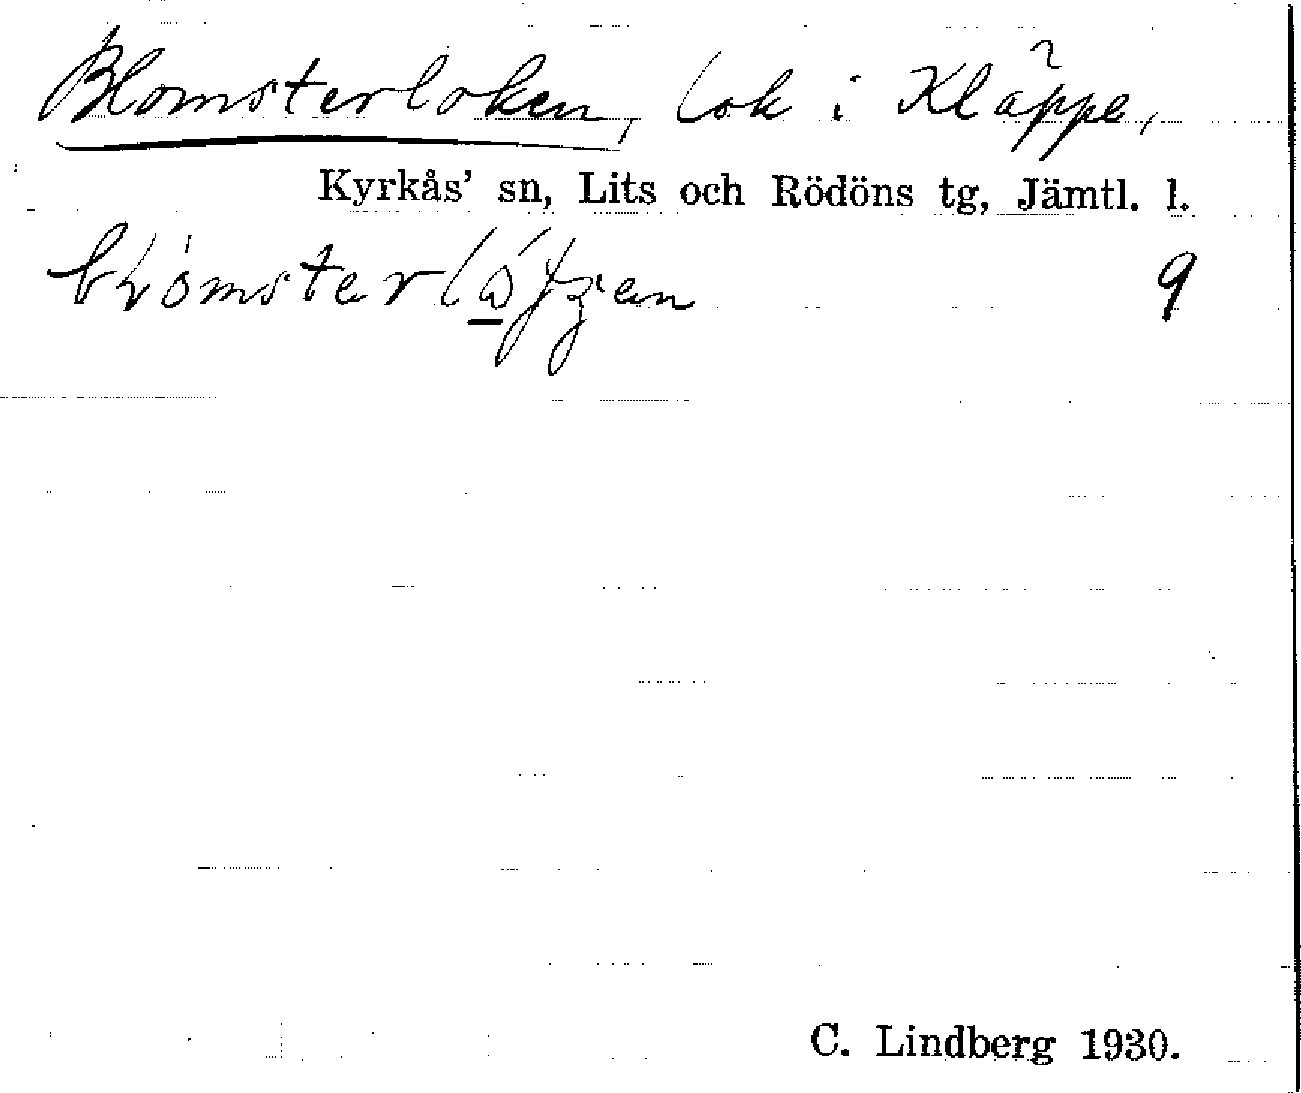 Blomsterloken, lok i Kläppe,
Kyrkås' sn, Lits och Rödöns tg, Jämtl. l.
9
C. Lindberg 1930.